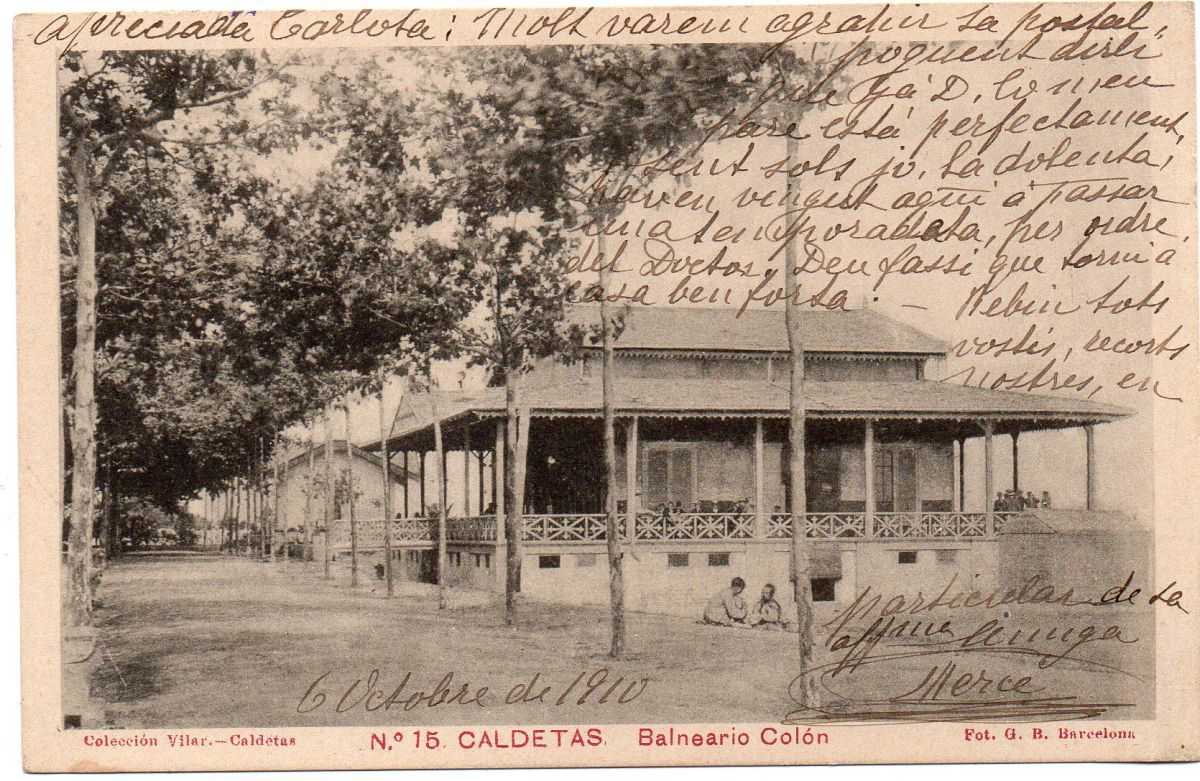 apreciada Carlota: Molt varem agrahir sa postal,
poguent dirli
que ja D. lo meu
pare está perfectament,
sent sols jo, la dolenta,
havent vingut aquí á passar
una temporadeta, per ordre
del Doctor, Deu fassi que torni á
casa ben forta. — Rebin tots
vostis, recorts
nostres, en
particular de sa
affma Amiga
Merce
6 Octobre de 1910
Colección Vilar.—Caldetas
N.º 15. CALDETAS. Balneario Colón
Fot. G. B. Barcelona